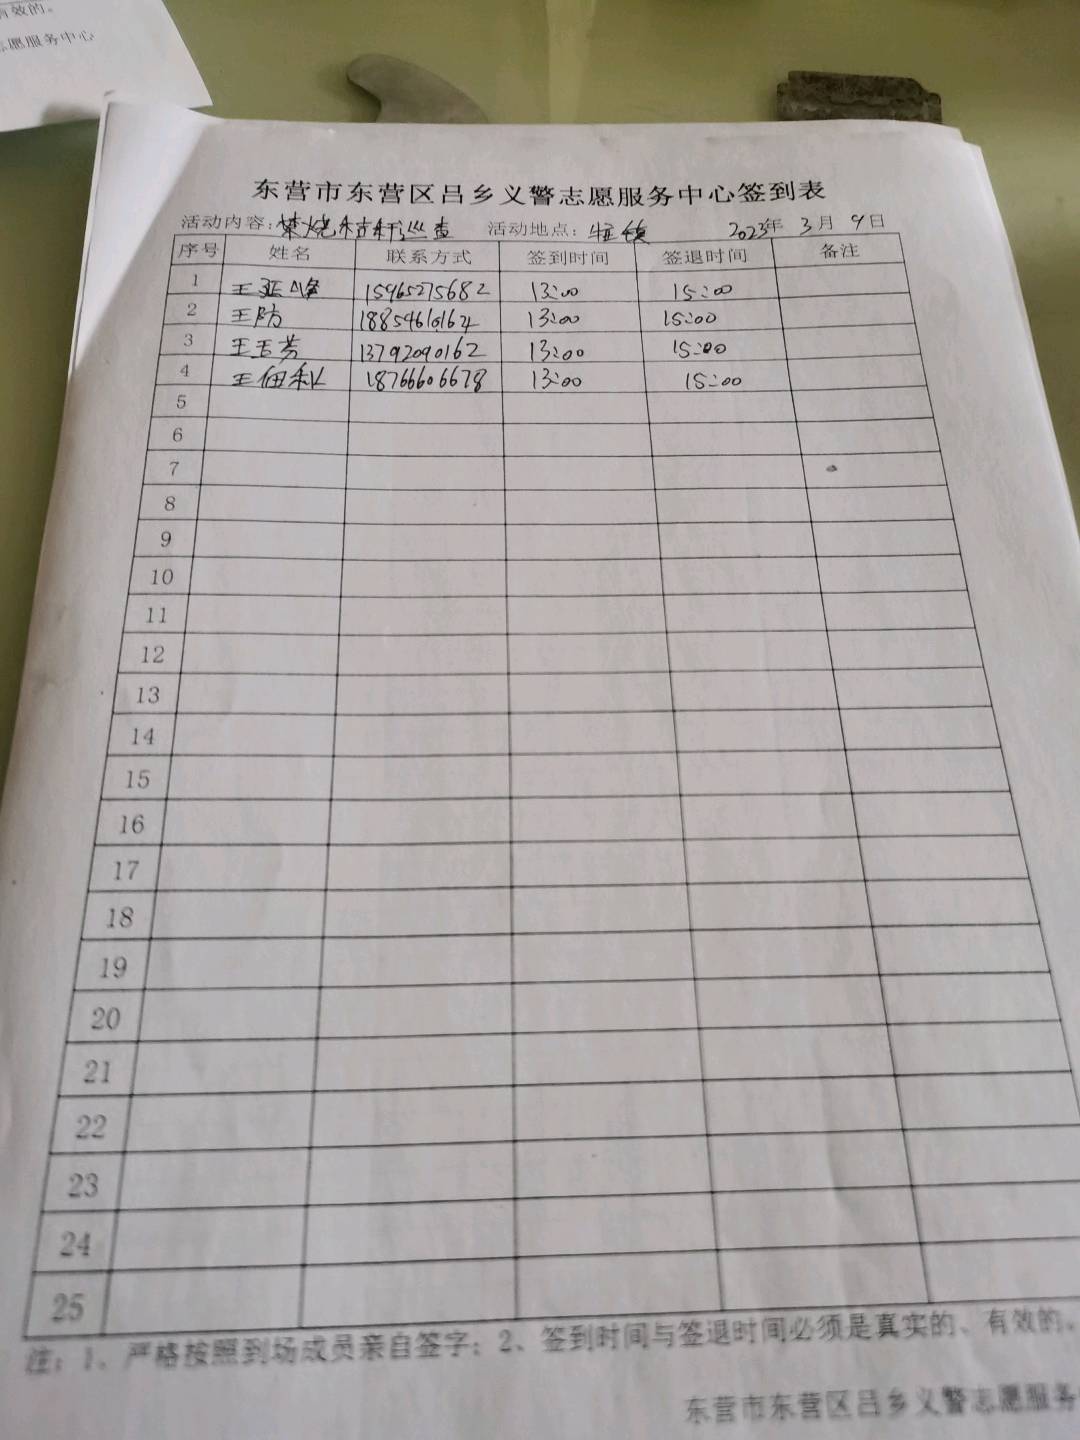 有效的。
志愿服务中心
东营市东营区吕乡义警志愿服务中心签到表
活动内容：禁烧秸秆巡查 活动地点： 镇 2023年 3月 9日
序号 姓名 联系方式 签到时间 签退时间 备注
1 王亚峰 15965275682 13:00 15:00
2 王防 18854610164 13:00 15:00
3 王玉芳 13792090162 13:00 15:00
4 王佃利 18766606678 13:00 15:00
5
6
7
8
9
10
11
12
13
14
15
16
17
18
19
20
21
22
23
24
25
注：1、严格按照到场成员亲自签字；2、签到时间与签退时间必须是真实的、有效的。
东营市东营区吕乡义警志愿服务